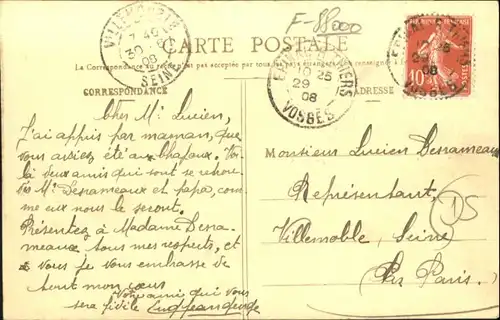 F-88000
CARTE POSTALE
La Correspondance au recto n'est pas acceptée par tous les pays étrangers. (Se renseigner
CORRESPONDANCE
ADRESSE
VILLEMOMBLE
30
08
SEINE
25
29
08
VOSGES
RÉPUBLIQUE FRANÇAISE
10
Cher Mr Lucien,
J'ai appris par maman, que
vous aviez été aux Chapaux. Voi-
là deux amis qui sont se
Mr Desrameaux et papa, com
me eux nous le seront.
Présentez à Madame Desra-
meaux tous mes respects, et
Vous je vous embrasse de
tout mon cœur
Votre ami qui vous
sera fidèle
Monsieur Lucien Desrameaux
Représentant,
Villemoble, Seine
(Par Paris.)
DS